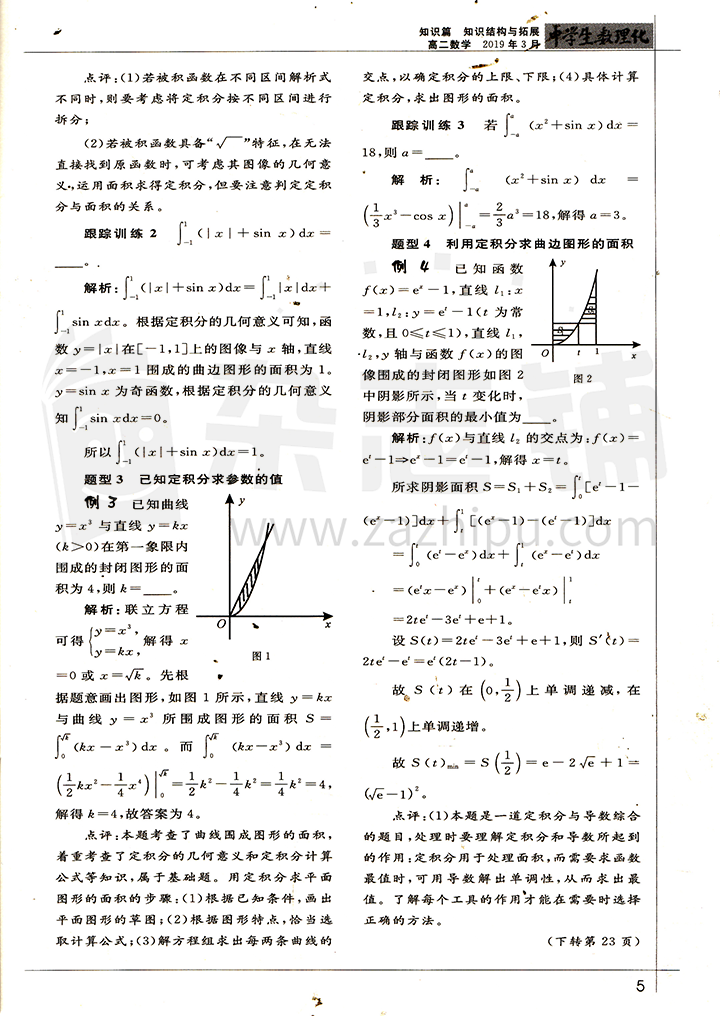 知识篇 知识结构与拓展
高二数学 2019年3月
中学生数理化
点评:(1)若被积函数在不同区间解析式
不同时,则要考虑将定积分按不同区间进行
拆分;
(2)若被积函数具备“√‾”特征,在无法
直接找到原函数时,可考虑其图像的几何意
义,运用面积求得定积分,但要注意判定定积
分与面积的关系。
跟踪训练2 ∫₋₁¹(|x|+sin x)dx=
____。
解析:∫₋₁¹(|x|+sin x)dx=∫₋₁¹|x|dx+
∫₋₁¹sin xdx。根据定积分的几何意义可知,函
数y=|x|在[-1,1]上的图像与x轴,直线
x=-1,x=1围成的曲边图形的面积为1。
y=sin x为奇函数,根据定积分的几何意义
知∫₋₁¹sin xdx=0。
所以∫₋₁¹(|x|+sin x)dx=1。
题型3 已知定积分求参数的值
例3 已知曲线
y=x³与直线y=kx
(k>0)在第一象限内
围成的封闭图形的面
积为4,则k=____。
解析:联立方程
可得{y=x³, y=kx, 解得x
=0或x=√k。先根
y
O
x
图1
据题意画出图形,如图1所示,直线y=kx
与曲线y=x³所围成图形的面积S=
∫₀^√k(kx-x³)dx。而∫₀^√k(kx-x³)dx=
(1/2kx²-1/4x⁴)|₀^√k=1/2k²-1/4k²=1/4k²=4,
解得k=4,故答案为4。
点评:本题考查了曲线围成图形的面积,
着重考查了定积分的几何意义和定积分计算
公式等知识,属于基础题。用定积分求平面
图形的面积的步骤:(1)根据已知条件,画出
平面图形的草图;(2)根据图形特点,恰当选
取计算公式;(3)解方程组求出每两条曲线的
交点,以确定积分的上限、下限;(4)具体计算
定积分,求出图形的面积。
跟踪训练3 若∫₋ₐᵃ(x²+sin x)dx=
18,则a=____。
解析:∫₋ₐᵃ(x²+sin x)dx=
(1/3x³-cos x)|₋ₐᵃ=2/3a³=18,解得a=3。
题型4 利用定积分求曲边图形的面积
例4 已知函数
f(x)=eˣ-1,直线l₁:x
=1,l₂:y=eᵗ-1(t为常
数,且0≤t≤1),直线l₁,
l₂,y轴与函数f(x)的图
像围成的封闭图形如图2
中阴影所示,当t变化时,
阴影部分面积的最小值为____。
y
O
t
1
x
图2
解析:f(x)与直线l₂的交点为:f(x)=
eᵗ-1⇒eˣ-1=eᵗ-1,解得x=t。
所求阴影面积S=S₁+S₂=∫₀ᵗ[eᵗ-1-
(eˣ-1)]dx+∫ₜ¹[(eˣ-1)-(eᵗ-1)]dx
=∫₀ᵗ(eᵗ-eˣ)dx+∫ₜ¹(eˣ-eᵗ)dx
=(eᵗx-eˣ)|₀ᵗ+(eˣ-eᵗx)|ₜ¹
=2teᵗ-3eᵗ+e+1。
设S(t)=2teᵗ-3eᵗ+e+1,则S′(t)=
2teᵗ-eᵗ=eᵗ(2t-1)。
故S(t)在(0,1/2)上单调递减,在
(1/2,1)上单调递增。
故S(t)min=S(1/2)=e-2√e+1=
(√e-1)²。
点评:(1)本题是一道定积分与导数综合
的题目,处理时要理解定积分和导数所起到
的作用:定积分用于处理面积,而需要求函数
最值时,可用导数解出单调性,从而求出最
值。了解每个工具的作用才能在需要时选择
正确的方法。
(下转第23页)
5
杂志铺
www.zazhipu.com